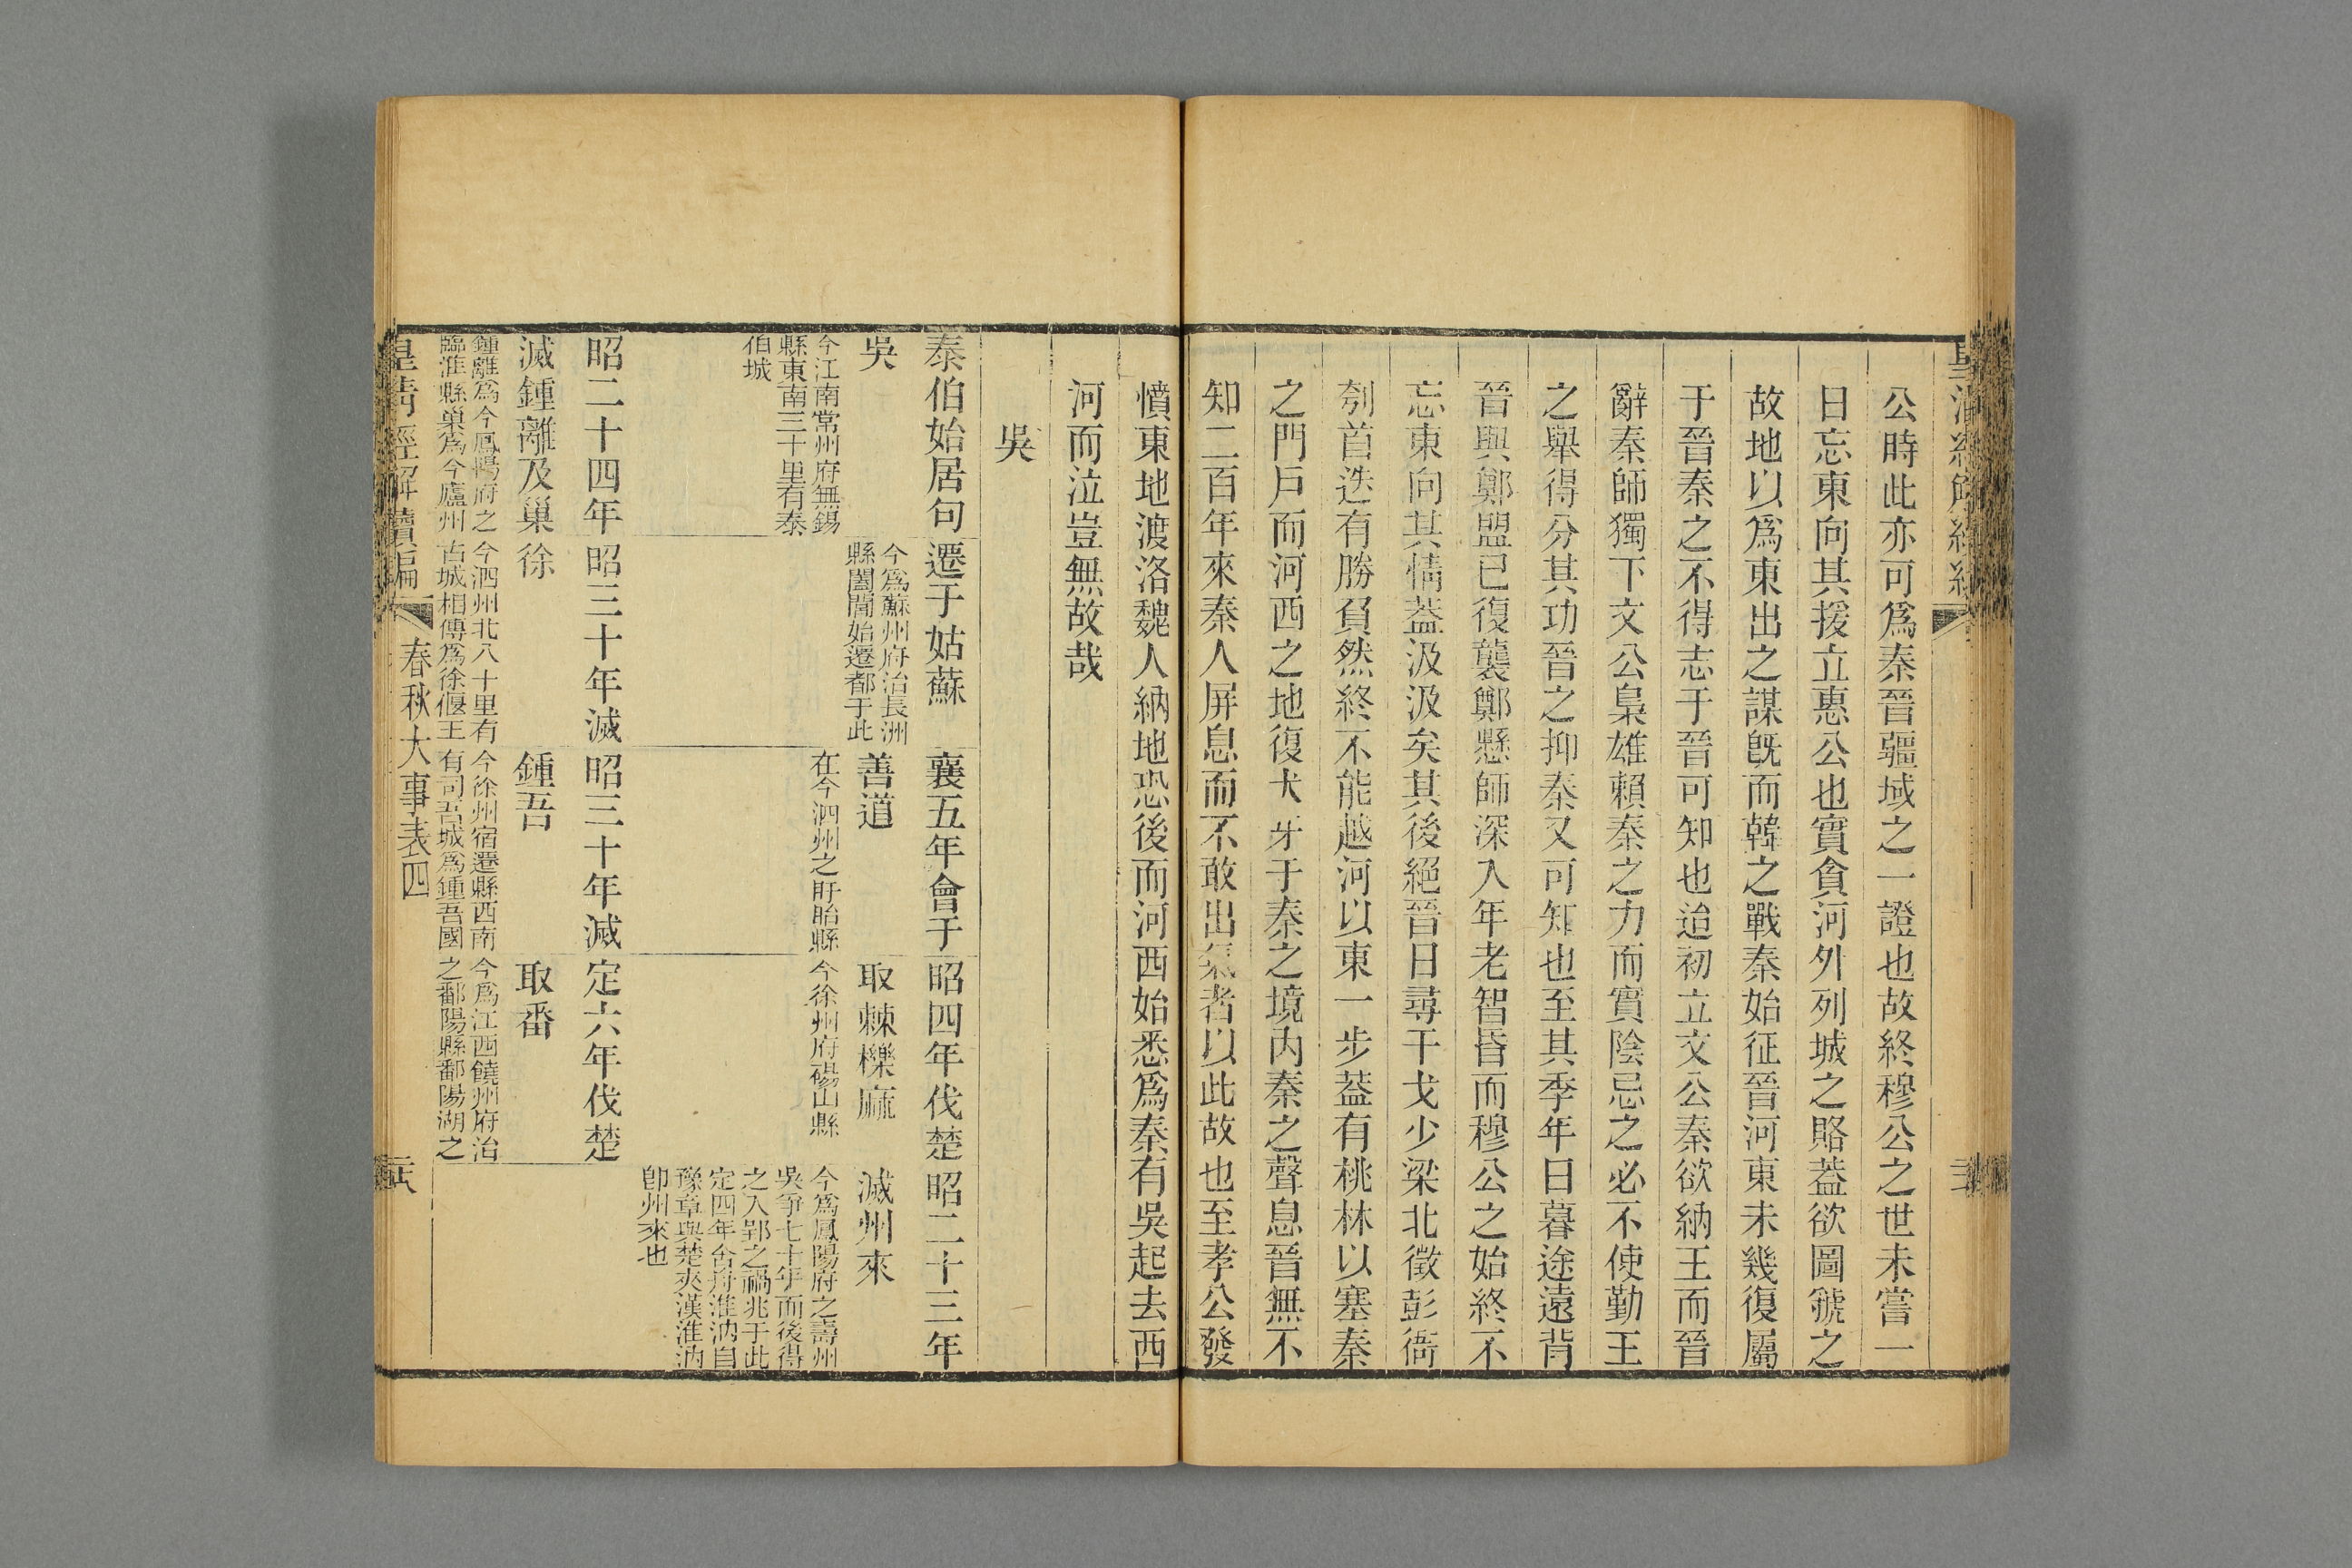 公時此亦可爲秦晉疆域之一證也故終穆公之世未嘗一
日忘東向其援立惠公也實貪河外列城之賂葢欲圖虢之
故地以爲東出之謀旣而韓之戰秦始征晉河東未幾復屬
于晉秦之不得志于晉可知也迨初立文公秦欲納王而晉
辭秦師獨下文公梟雄賴秦之力而實陰忌之必不使勤王
之舉得分其功晉之抑秦又可知也至其季年日暮途遠背
晉與鄭盟已復襲鄭懸師深入年老智昏而穆公之始終不
忘東向其情葢汲汲矣其後絕晉日尋干戈少梁北徵彭衙
刳首迭有勝負然終不能越河以東一步葢有桃林以塞秦
之門戶而河西之地復犬牙于秦之境內秦之聲息晉無不
知二百年來秦人屏息而不敢出氣者以此故也至孝公發
憤東地渡洛魏人納地恐後而河西始悉爲秦有吳起去西
河而泣豈無故哉
吳
泰伯始居句
吳
今江南常州府無錫
縣東南三十里有泰
伯城
遷于姑蘇
今爲蘇州府治長洲
縣闔閭始遷都于此
襄五年會于
善道
在今泗州之盱眙縣
昭四年伐楚
取棘櫟麻
今徐州府碭山縣
昭二十三年
滅州來
今爲鳳陽府之壽州
吳爭七十年而後得
之入郢之禍兆于此
定四年舍舟淮汭自
豫章與楚夾漢淮汭
卽州來也
昭二十四年
滅鍾離及巢
鍾離爲今鳳陽府之
臨淮縣巢爲今廬州
昭三十年滅
徐
今泗州北八十里有
古城相傳爲徐偃王
昭三十年滅
鍾吾
今徐州宿遷縣西南
有司吾城爲鍾吾國
定六年伐楚
取番
今爲江西饒州府治
之鄱陽縣鄱陽湖之
皇清經解續編
春秋大事表四